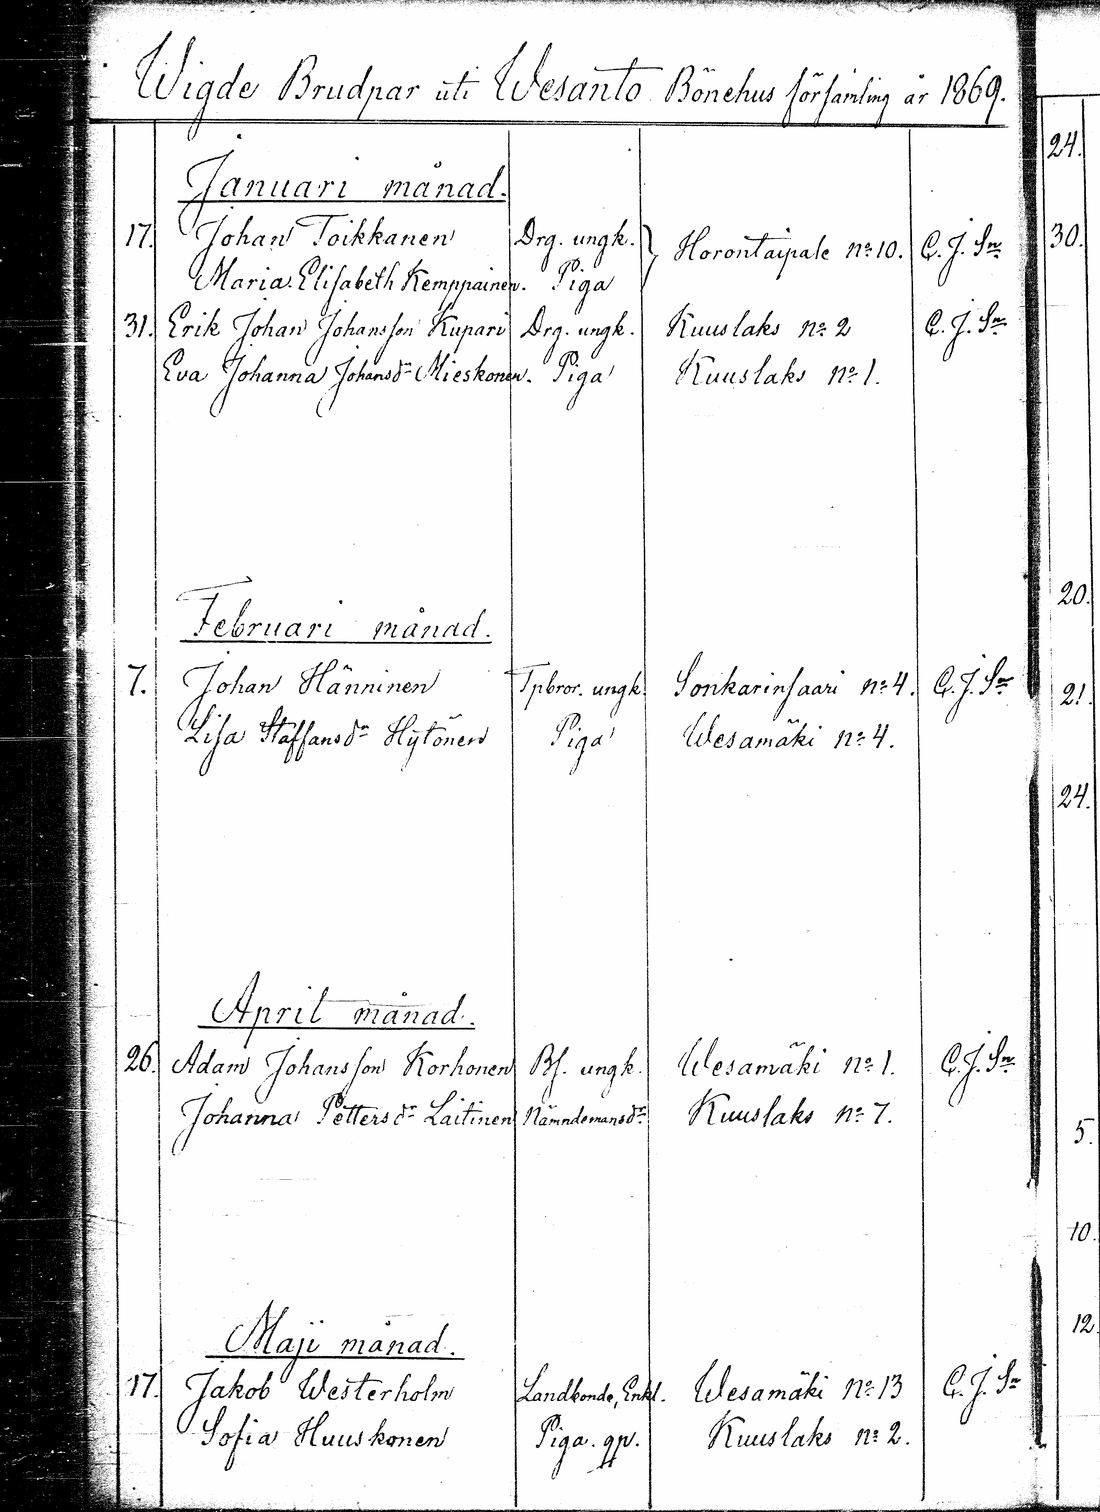 Wigde Brudpar uti Wesanto Bönehus församling år 1869.
Januari månad.
17. Johan Toikkanen Drg. ungk. } Horontaipale nº 10. C. J. Sn
Maria Elisabeth Kemppainen. Piga
31. Erik Johan Johansson Kupari Drg. ungk. Kuuslaks nº 2 C. J. Sn
Eva Johanna Johansdr Mieskonen. Piga Kuuslaks nº 1.
Februari månad.
7. Johan Hänninen Tpbror. ungk. Sonkarinsaari nº 4. C. J. Sn
Lisa Staffansdr Hytönen Piga Wesamäki nº 4.
April månad.
26. Adam Johansson Korhonen Bs. ungk. Wesamäki nº 1. C. J. Sn
Johanna Pettersdr Laitinen Nämndemansdr Kuuslaks nº 7.
Maji månad.
17. Jakob Westerholm Landbonde, Enkl. Wesamäki nº 13 C. J. Sn
Sofia Huuskonen Piga. gp. Kuuslaks nº 2.
24.
30.
20.
21.
24.
5.
10.
12.